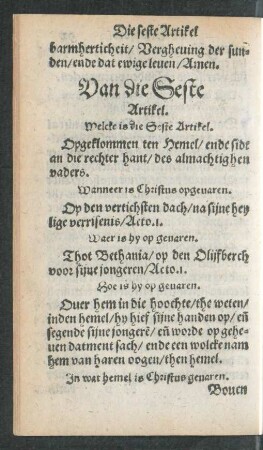 Die seste Artikel
barmherticheit/ Vergheuing der sun⸗
den/ ende dat ewige leuen/ Amen.
Van die Seste
Artikel.
Welcke is die Seste Artikel.
Opgeklommen ten Hemel/ ende sidt
an die rechter hant/ des almachtighen
vaders.
Wanneer is Christus opgeuaren.
Op den veertichsten dach/ na sijne hey
lige verrisenis/ Acto.1.
Waer is hy op geuaren.
Thot Bethania/ op den Olijfberch
voor sijne jongeren/ Acto.1.
Hoe is hy op geuaren.
Ouer hem in die hoochte/ the weten/
inden hemel/ hy hief sijne handen op/ eñ
segende sijne jongerē/ eñ worde op gehe⸗
uen datment sach/ ende een wolcke nam
hem van haren oogen/ then hemel.
In wat hemel is Christus geuaren.
Bouen